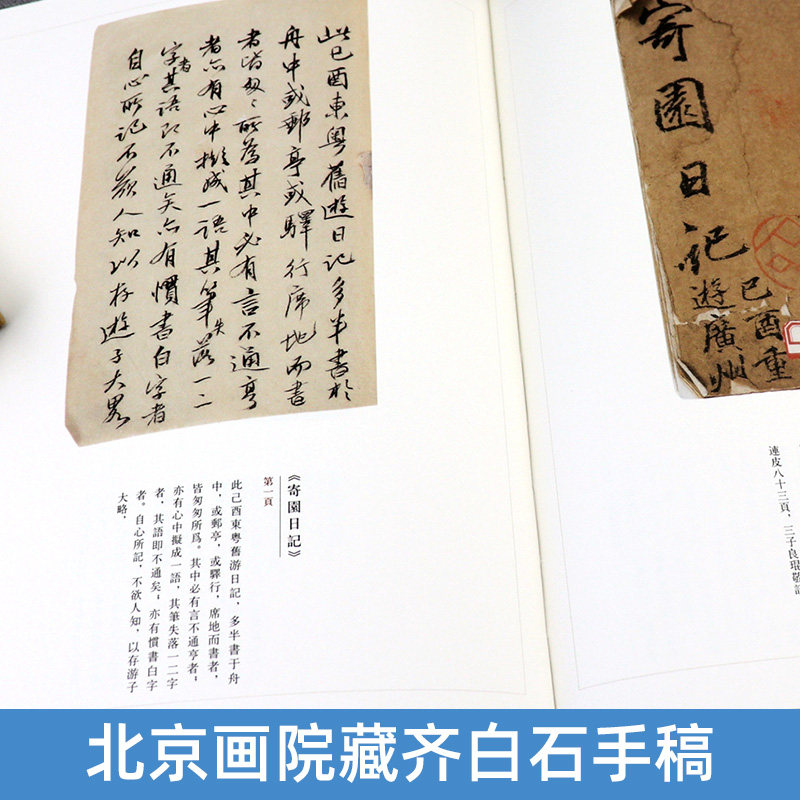 寄園日記
己酉重
遊廣州
連皮八十三頁,三子良琨敬記
此己酉東粵舊遊日記多半書於
舟中或郵亭或驛行席地而書
者皆匆〻所為其中必有言不通亨
者亦有心中擬成一語其筆失落一二
字者其語即不通矣亦有慣書白字者
自心所記不欲人知以存遊子大畧
《寄園日記》
第一頁
此己酉東粵舊游日記,多半書于舟
中,或郵亭,或驛行,席地而書者,
皆匆匆所爲。其中必有言不通亨者;
亦有心中擬成一語,其筆失落一二字
者,其語即不通矣;亦有慣書白字
者。自心所記,不欲人知,以存游子
大略。
北京画院藏齐白石手稿